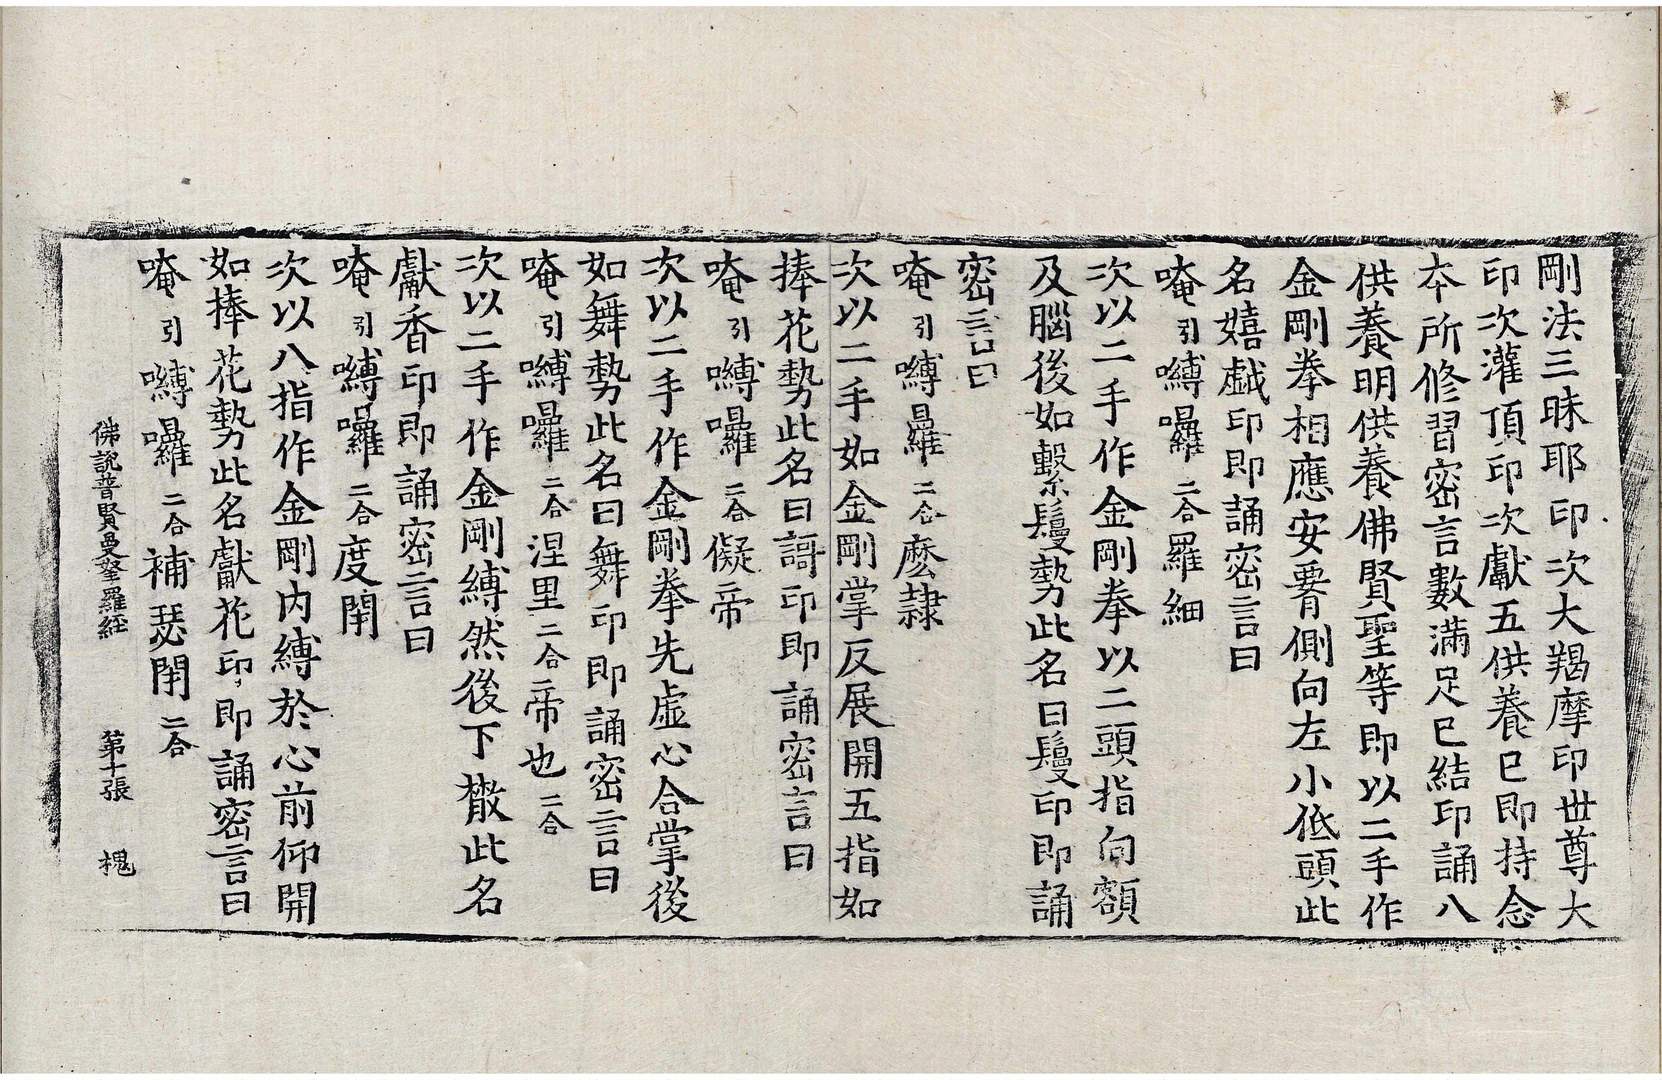 剛法三昧耶印次大羯摩印世尊大
印次灌頂印次獻五供養已即持念
本所修習密言數滿足已結印誦八
供養明供養佛賢聖等即以二手作
金剛拳相應安䯒側向左小低頭此
名嬉戱印即誦密言曰
唵引嚩囉二合羅細
次以二手作金剛拳以二頭指向額
及腦後如繫鬘勢此名曰鬘印即誦
密言曰
唵引嚩囉二合麽隷
次以二手如金剛掌反展開五指如
捧花勢此名曰謌印即誦密言曰
唵引嚩囉二合儗帝
次以二手作金剛拳先虛心合掌後
如舞勢此名曰舞印即誦密言曰
唵引嚩囉二合涅里二合帝也二合
次以二手作金剛縛然後下撒此名
獻香印即誦密言曰
唵引嚩囉二合度閇
次以八指作金剛内縛於心前仰開
如捧花勢此名獻花印即誦密言曰
唵引嚩囉二合補瑟閇二合
佛說普賢曼拏羅經 第十張 槐